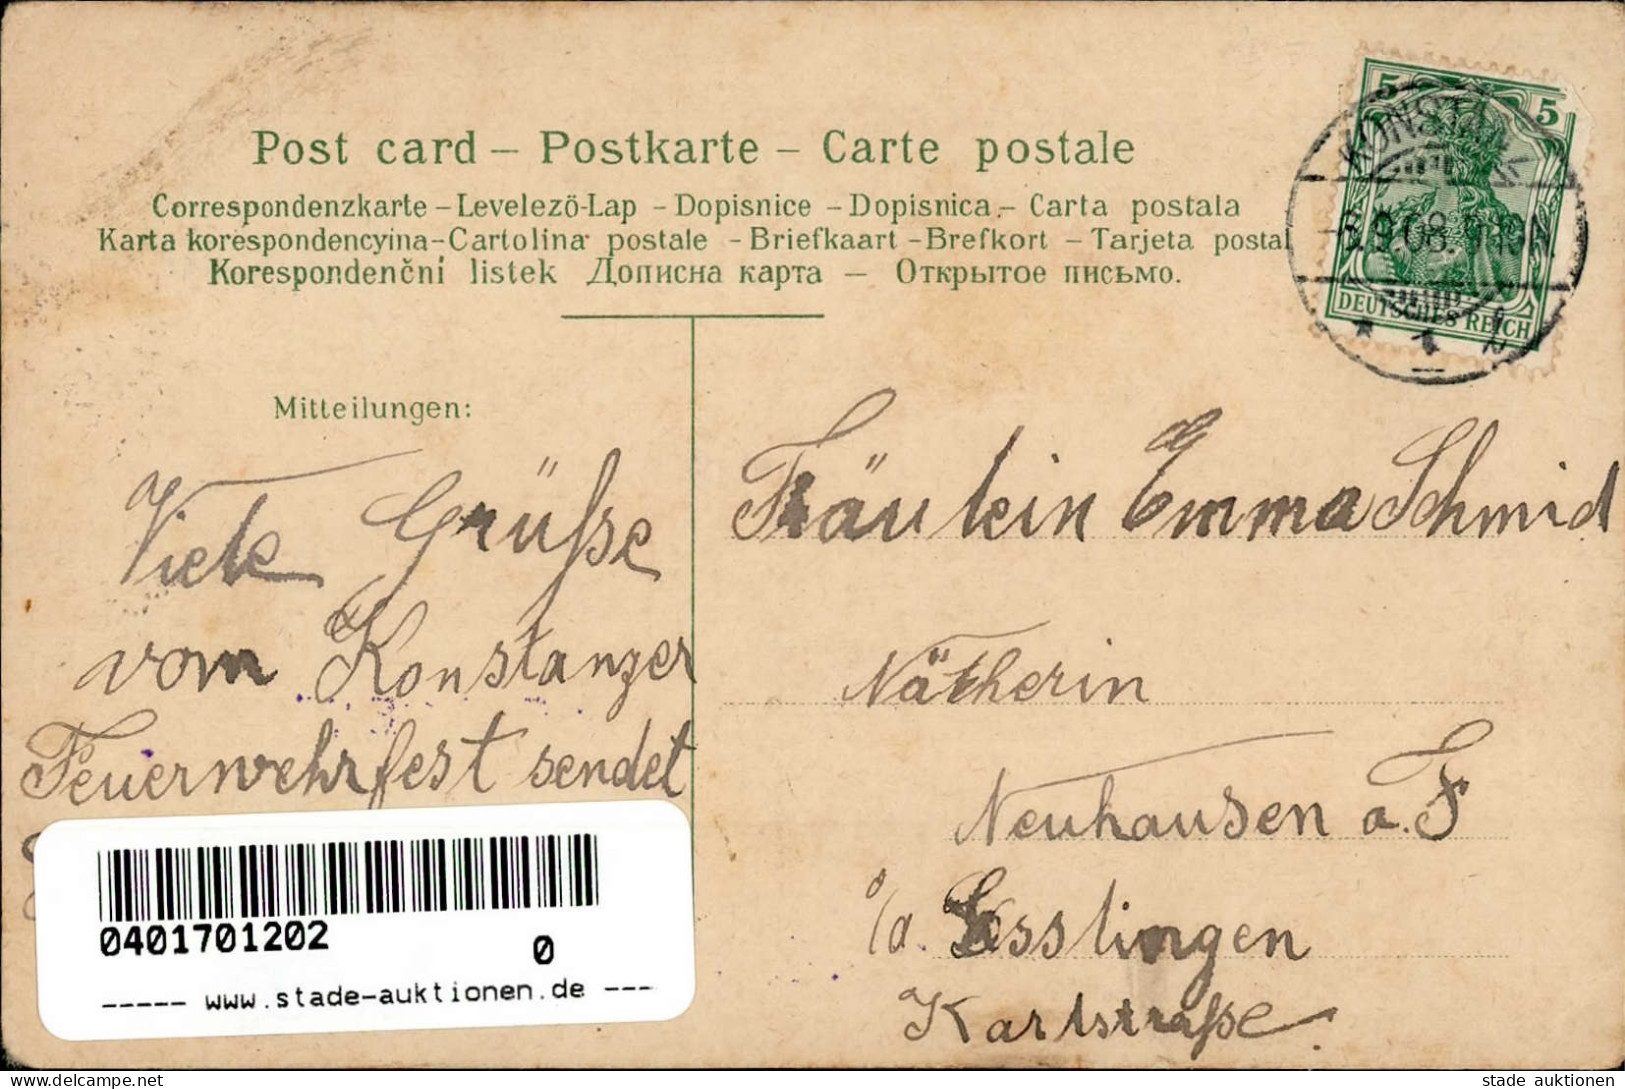 Post card – Postkarte – Carte postale
Correspondenzkarte – Levelezö-Lap – Dopisnice – Dopisnica – Carta postala
Karta korespondencyina – Cartolina postale – Briefkaart – Brefkort – Tarjeta postal
Korespondenční listek Дописна карта — Открытое письмо.
5 5
KONSTANZ
6.9.08. 9-10N
DEUTSCHES REICH
* 1 b
Mitteilungen:
Viele Grüße
vom Konstanzer
Feuerwehrfest sendet
Fräulein Emma Schmid
Nätherin
Neuhausen a. F
o/a. Esslingen
Karlstraße.
0401701202
0
----- www.stade-auktionen.de ---
stade auktionen
delcampe.net